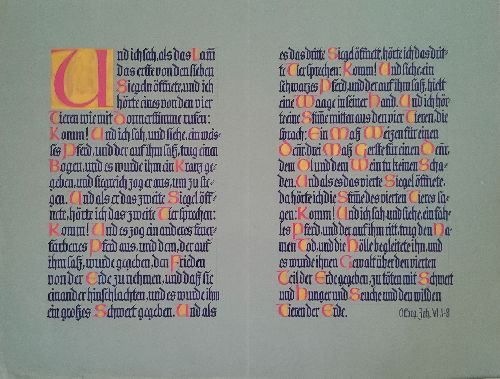 Und ich sah, als das Lam̅
das erste von den sieben
Siegeln öffnete, und ich
hörte eines von den vier
Tieren wie mit Donnerstimme rufen:
Komm! Und ich sah, und siehe, ein weis-
ses Pferd, und der auf ihm saß, trug einen
Bogen, und es wurde ihm ein Kranz ge-
geben, und siegreich zog er aus, um zu sie-
gen. Und als er das zweite Siegel öff-
nete, hörte ich das zweite Tier sprechen:
Komm! Und es zog ein anderes feuer-
farbenes Pferd aus, und dem, der auf
ihm saß, wurde gegeben, den Frieden
von der Erde zu nehmen, und daß sie
einander hinschlachten, und es wurde ihm
ein großes Schwert gegeben. Und als
es das dritte Siegel öffnete, hörte ich das drit-
te Tier sprechen: Komm! Und siehe ein
schwarzes Pferd, und der auf ihm saß, hielt
eine Waage in seiner Hand. Und ich hör-
te eine Stimme mitten aus den vier Tieren, die
sprach: Ein Maß Weizen für einen
Denar, drei Maß Gerste für einen Denar,
dem Öl und dem Wein tu keinen Scha-
den. Und als es das vierte Siegel öffnete,
da hörte ich die Stimme des vierten Tieres sa-
gen: Komm! Und ich sah, und siehe ein fah-
les Pferd, und der auf ihm ritt, trug den Na-
men Tod, und die Hölle begleitete ihn, und
es wurde ihnen Gewalt über den vierten
Teil der Erde gegeben, zu töten mit Schwert
und Hunger und Seuche und den wilden
Tieren der Erde.